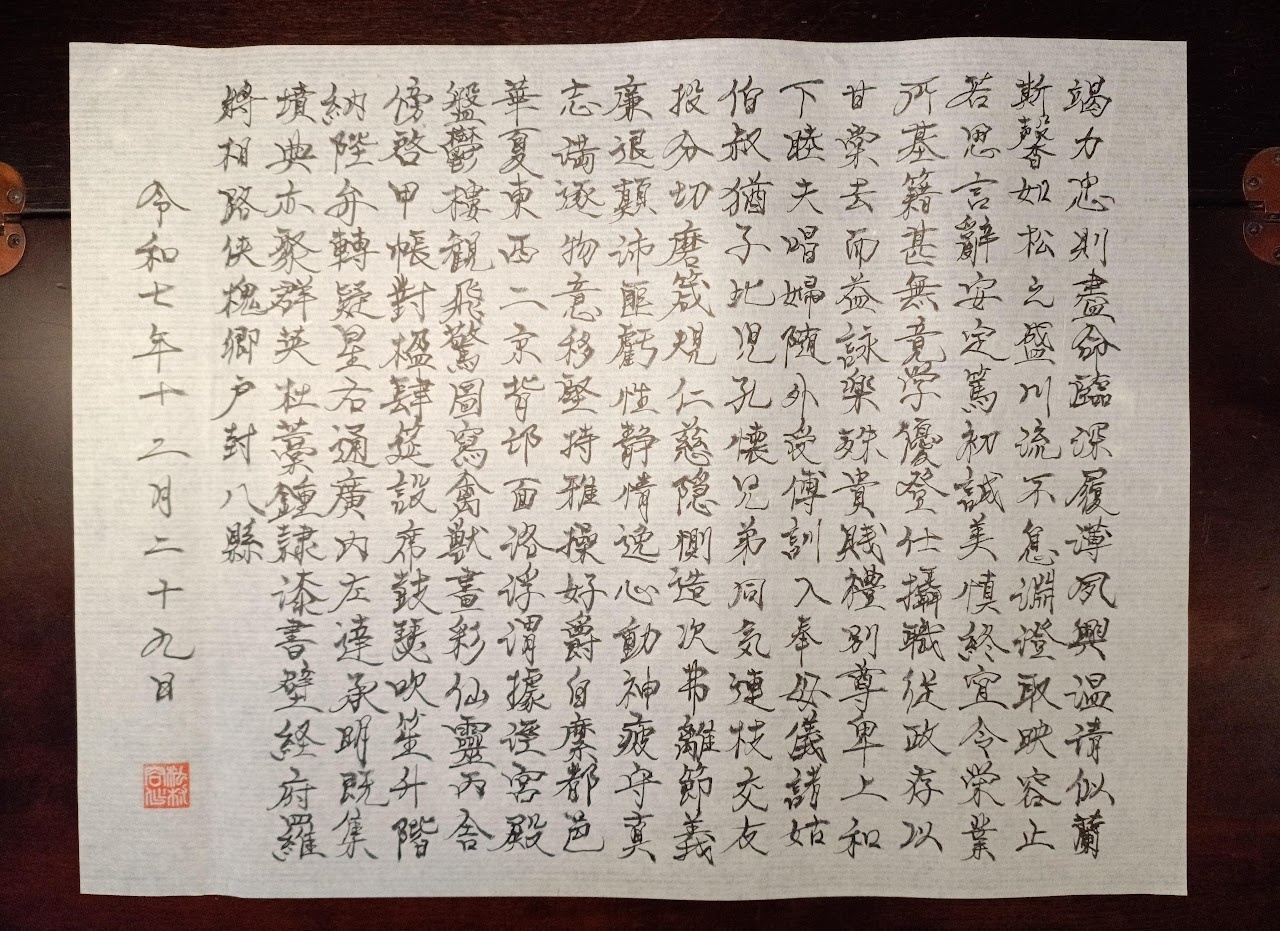 竭力忠則盡命臨深履薄夙興温凊似蘭
斯馨如松之盛川流不息淵澄取映容止
若思言辭安定篤初誠美慎終宜令榮業
所基籍甚無竟学優登仕攝職従政存以
甘棠去而益詠楽殊貴賤禮別尊卑上和
下睦夫唱婦随外受傅訓入奉母儀諸姑
伯叔猶子比児孔懐兄弟同気連枝交友
投分切磨箴規仁慈隠惻造次弗離節義
廉退顛沛匪虧性静情逸心動神疲守真
志満逐物意移堅持雅操好爵自縻都邑
華夏東西二京背邙面洛浮渭據涇宮殿
盤鬱樓観飛驚圖寫禽獣畫彩仙靈丙舎
傍啓甲帳對楹肆筵設席鼓瑟吹笙升階
納陛弁轉疑星右通廣内左達承明既集
墳典亦聚群英杜藁鍾隷漆書壁経府羅
將相路侠槐卿户封八縣
令和七年十二月二十九日